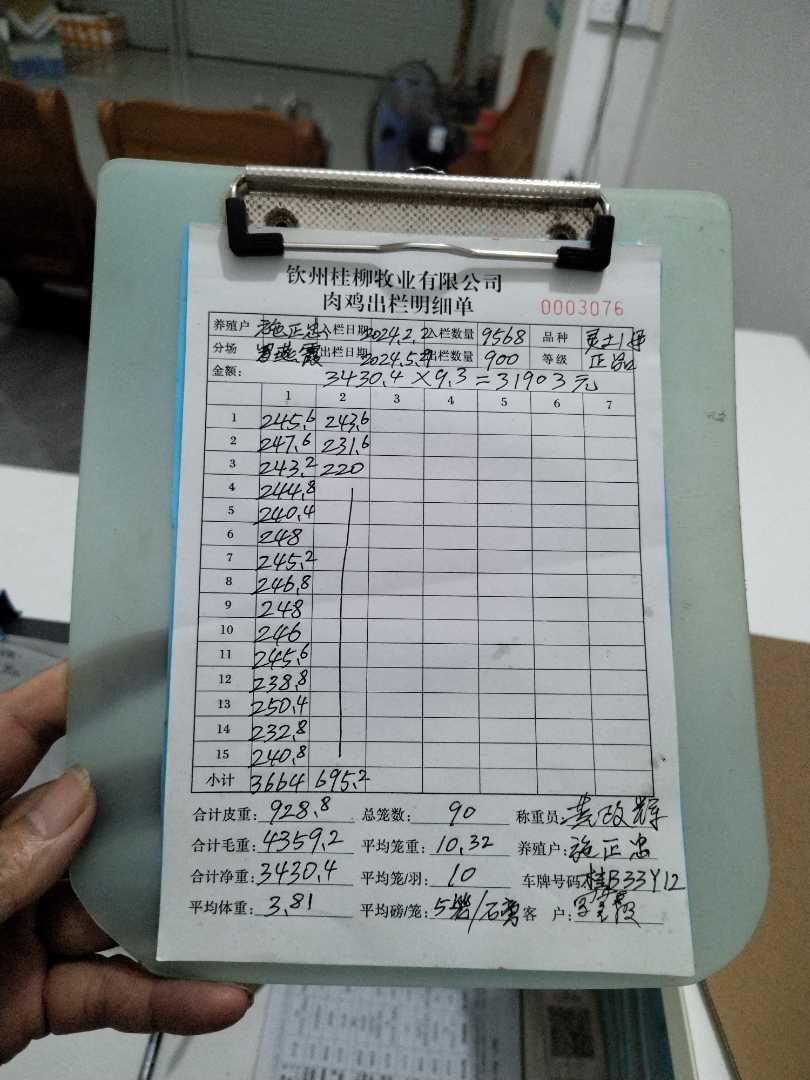 钦州桂柳牧业有限公司
肉鸡出栏明细单 0003076
养殖户 施正忠 入栏日期 2024.2.2 入栏数量 9568 品种
分场 出栏日期 2024.5. 出栏数量 900 等级 正品
金额: 3430.4×9.3=31903元
1 2 3 4 5 6 7
1 245.6 243.6
2 247.6 231.6
3 243.2 220
4 244.8
5 240.4
6 248
7 245.2
8 246.8
9 248
10 246
11 245.6
12 238.8
13 250.4
14 232.8
15 240.8
小计 3664 695.2
合计皮重: 928.8 总笼数: 90 称重员: 黄政辉
合计毛重: 4359.2 平均笼重: 10.32 养殖户: 施正忠
合计净重: 3430.4 平均笼/羽: 10 车牌号码: 桂B33Y12
平均体重: 3.81 平均磅/笼: 5 客户: